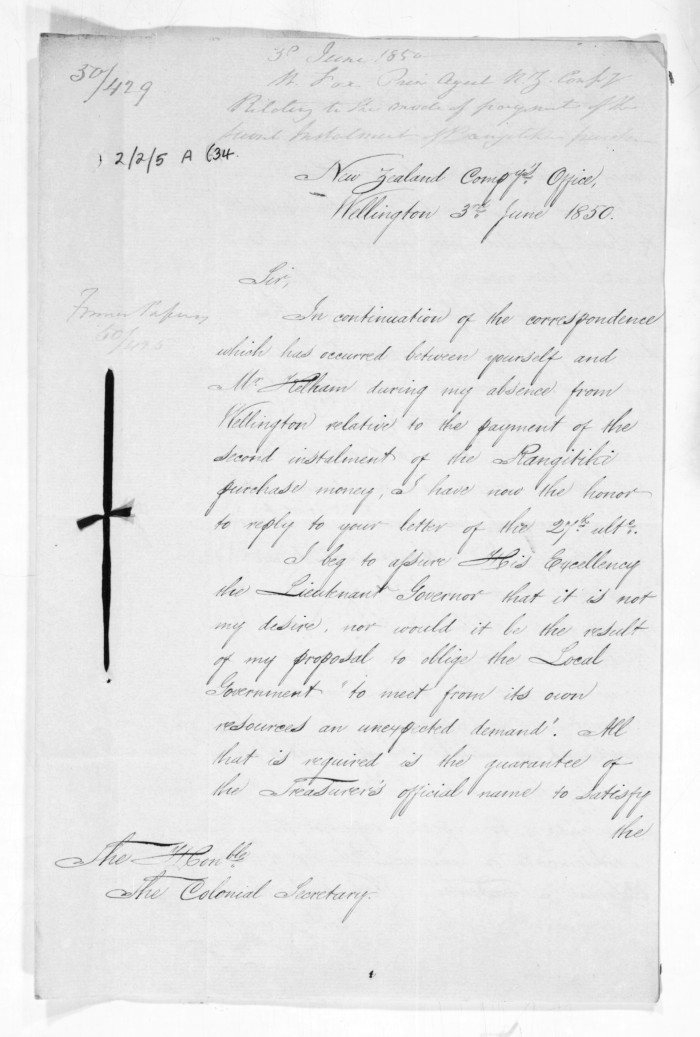 50/429
3d June 1850
W. Fox Prin Agent N.Z. Compy
Relating to the mode of payment of the
Second Instalment of Rangitiki purchase
2/2/5 A (34.
New Zealand Compy's Office,
Wellington 3rd June 1850.
Sir,
Former Papers
In continuation of the correspondence
which has occurred between yourself and
Mr Kelham during my absence from
Wellington relative to the payment of the
second instalment of the Rangitiki
purchase money, I have now the honor
to reply to your letter of the 27th ulto.
I beg to assure His Excellency
the Lieutenant Governor that it is not
my desire, nor would it be the result
of my proposal to oblige the Local
Government 'to meet from its own
resources an unexpected demand'. All
that is required is the guarantee of
the Treasurer's official name to satisfy
the
The Honble
The Colonial Secretary.